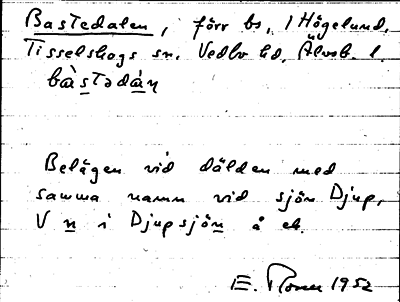 Bastedalen, förr bs, / Högelund,
Tisselskogs sn. Vedbo hd. Älvsb. l.
bàstədán
Belägen vid dälden med
samma namn vid sjön Djup,
V n i Djupsjön å ek.
E. Noren 1952